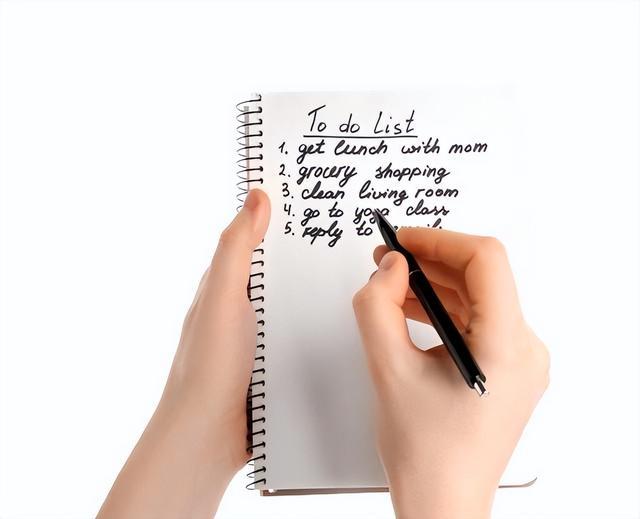 To do List
1. get lunch with mom
2. grocery shopping
3. clean living room
4. go to yoga class
5. reply to